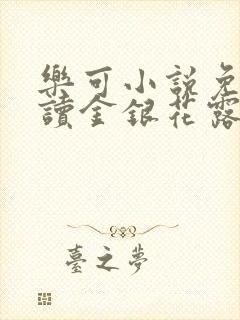 樂可小説免
讀金銀花露
臺之夢